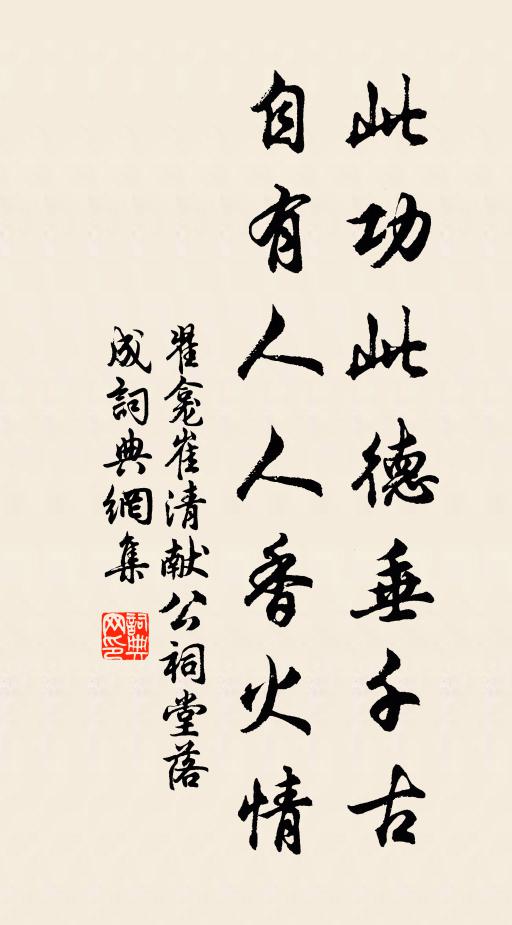 此功此德垂千古
自有人人香火情
翟龛崔清献公祠堂落
成詞典網集
詞典
网印